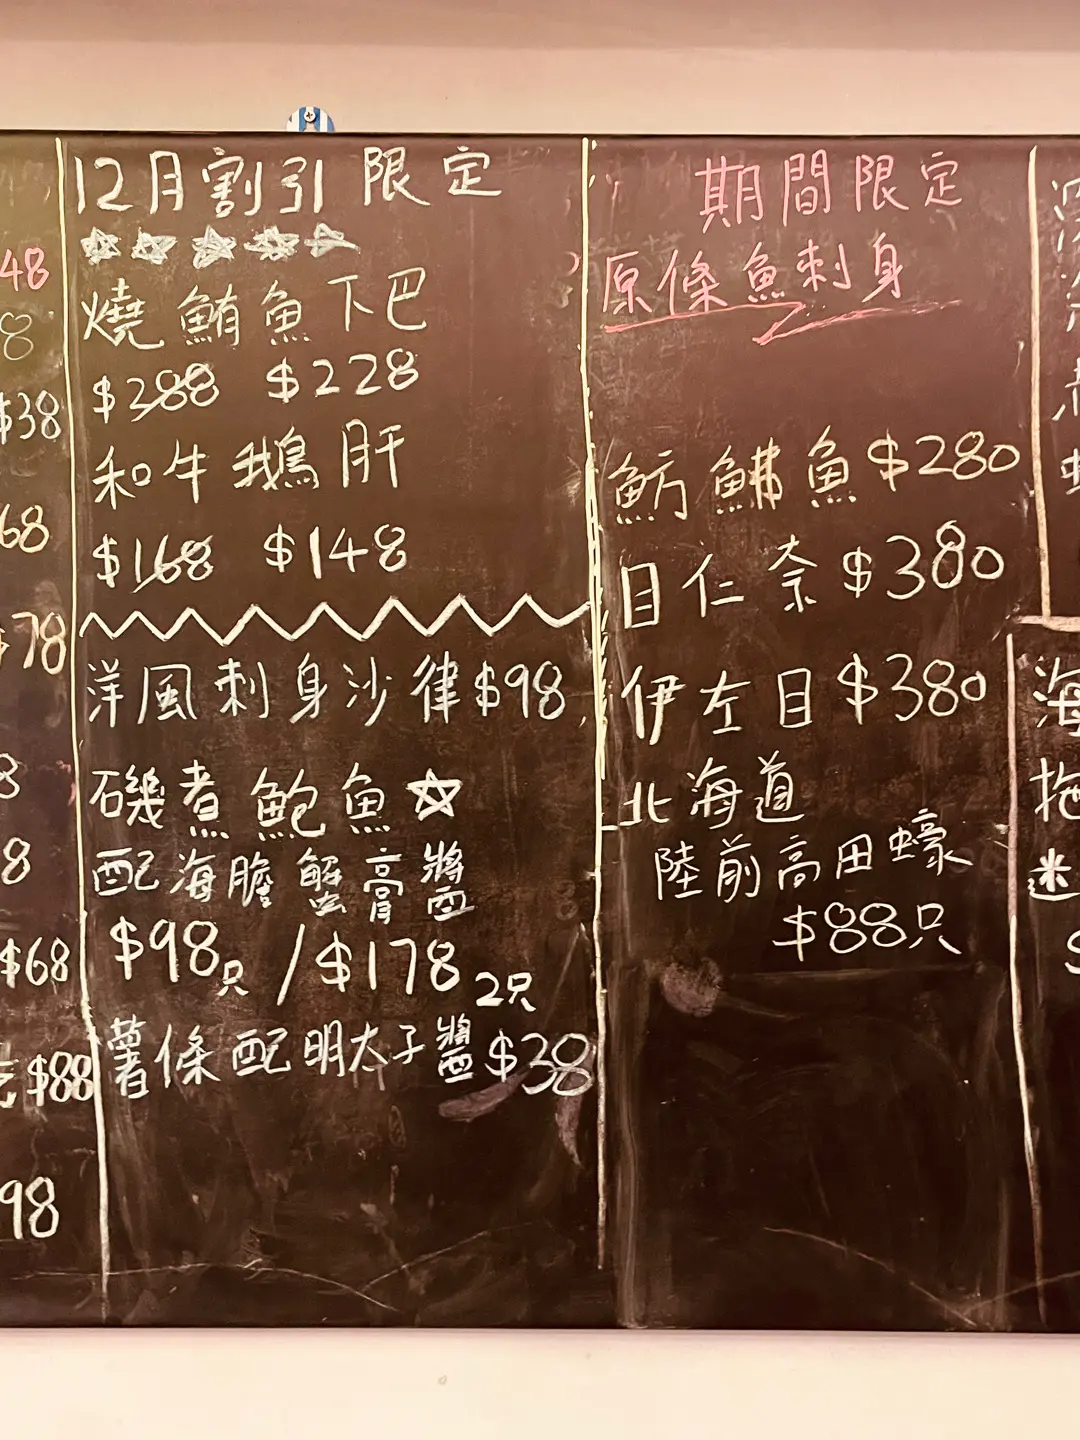 48
8
$38
68
$78
8
8
$68
$88
98
12月割引限定
燒鮪魚下巴
$388 $228
和牛鵝肝
$168 $148
洋風刺身沙律$98
磯煮鮑魚☆
配海膽蟹膏醬
$98只/$178 2只
薯條配明太子醬$38
期間限定
原條魚刺身
魴鮄魚$280
目仁奈$380
伊左目$380
北海道
陸前高田蠔
$88只
海
迷